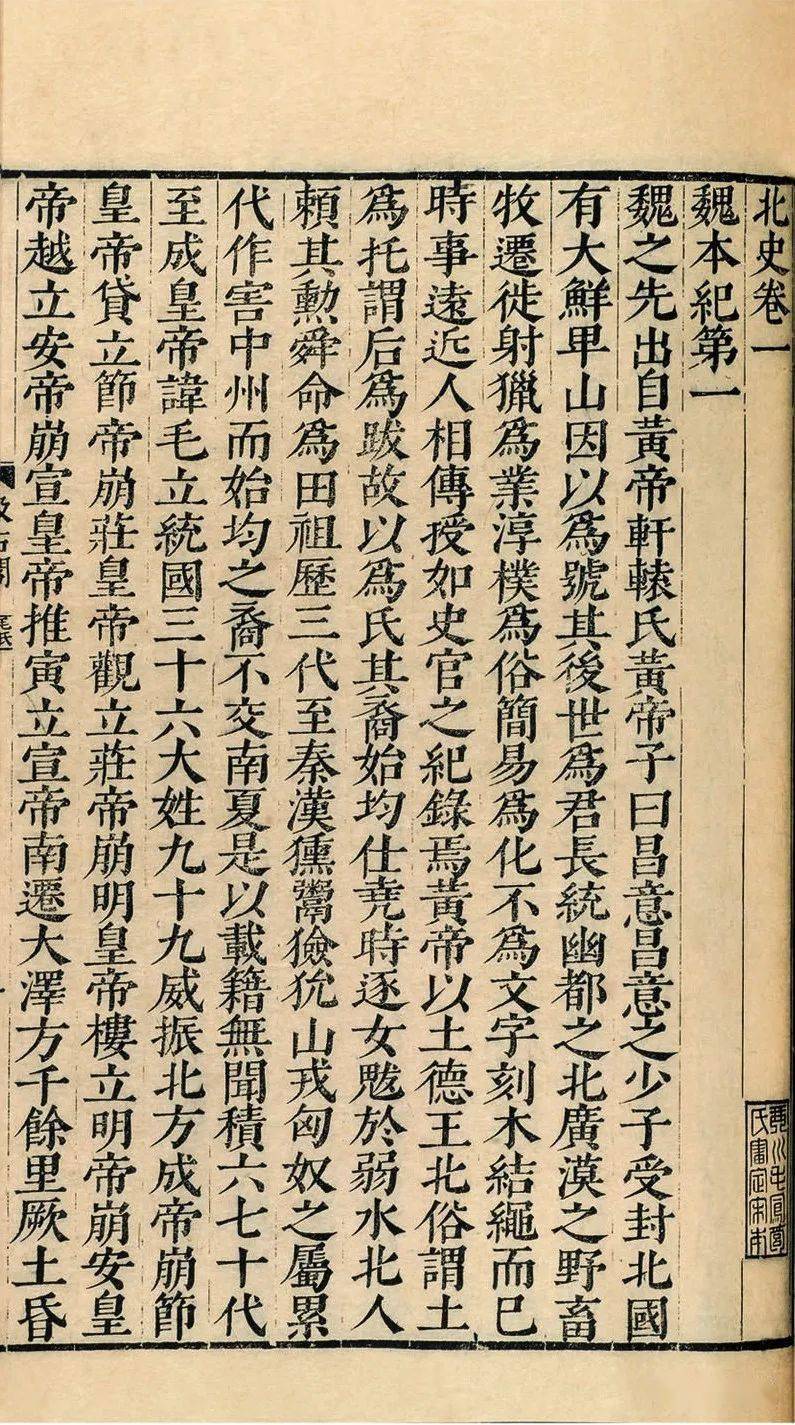 北史卷一
魏本紀第一
魏之先出自黃帝軒轅氏黃帝子曰昌意昌意之少子受封北國
有大鮮卑山因以爲號其後世爲君長統幽都之北廣漠之野畜
牧遷徙射獵爲業淳樸爲俗簡易爲化不爲文字刻木結繩而已
時事遠近人相傳授如史官之紀錄焉黃帝以土德王北俗謂土
爲托謂后爲跋故以爲氏其裔始均仕堯時逐女魃於弱水北人
賴其勳舜命爲田祖歷三代至秦漢獯鬻獫狁山戎匈奴之屬累
代作害中州而始均之裔不交南夏是以載籍無聞積六七十代
至成皇帝諱毛立統國三十六大姓九十九威振北方成帝崩節
皇帝貸立節帝崩莊皇帝觀立莊帝崩明皇帝樓立明帝崩安皇
帝越立安帝崩宣皇帝推寅立宣帝南遷大澤方千餘里厥土昏